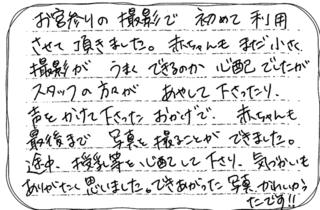 お宮参りの撮影で 初めて利用
させて頂きました。赤ちゃんもまだ小さく
撮影が うまくできるのか心配でしたが
スタッフの方々が あやして下さったり、
声をかけて下さったおかげで、赤ちゃんも
最後まで 写真を撮ることができました。
途中、授乳等を心配して下さり、気づかいも
ありがたく思いました。できあがった写真かわいかっ
たです!!